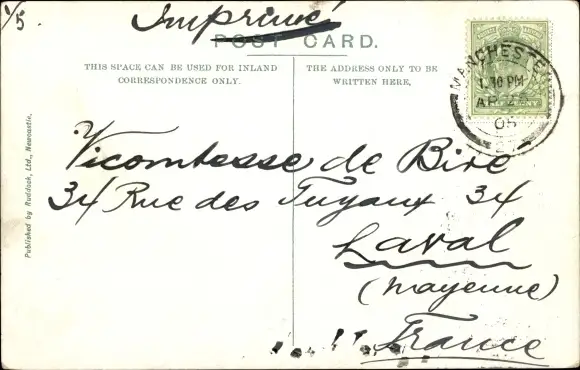 1/5
Imprimé
POST CARD.
THIS SPACE CAN BE USED FOR INLAND
CORRESPONDENCE ONLY.
THE ADDRESS ONLY TO BE
WRITTEN HERE.
MANCHESTER
1.30 PM
AP
05
Vicomtesse de Biré
34 Rue des Tuyaux 34
Laval
(Mayenne)
France
Published by Ruddock, Ltd., Newcastle.